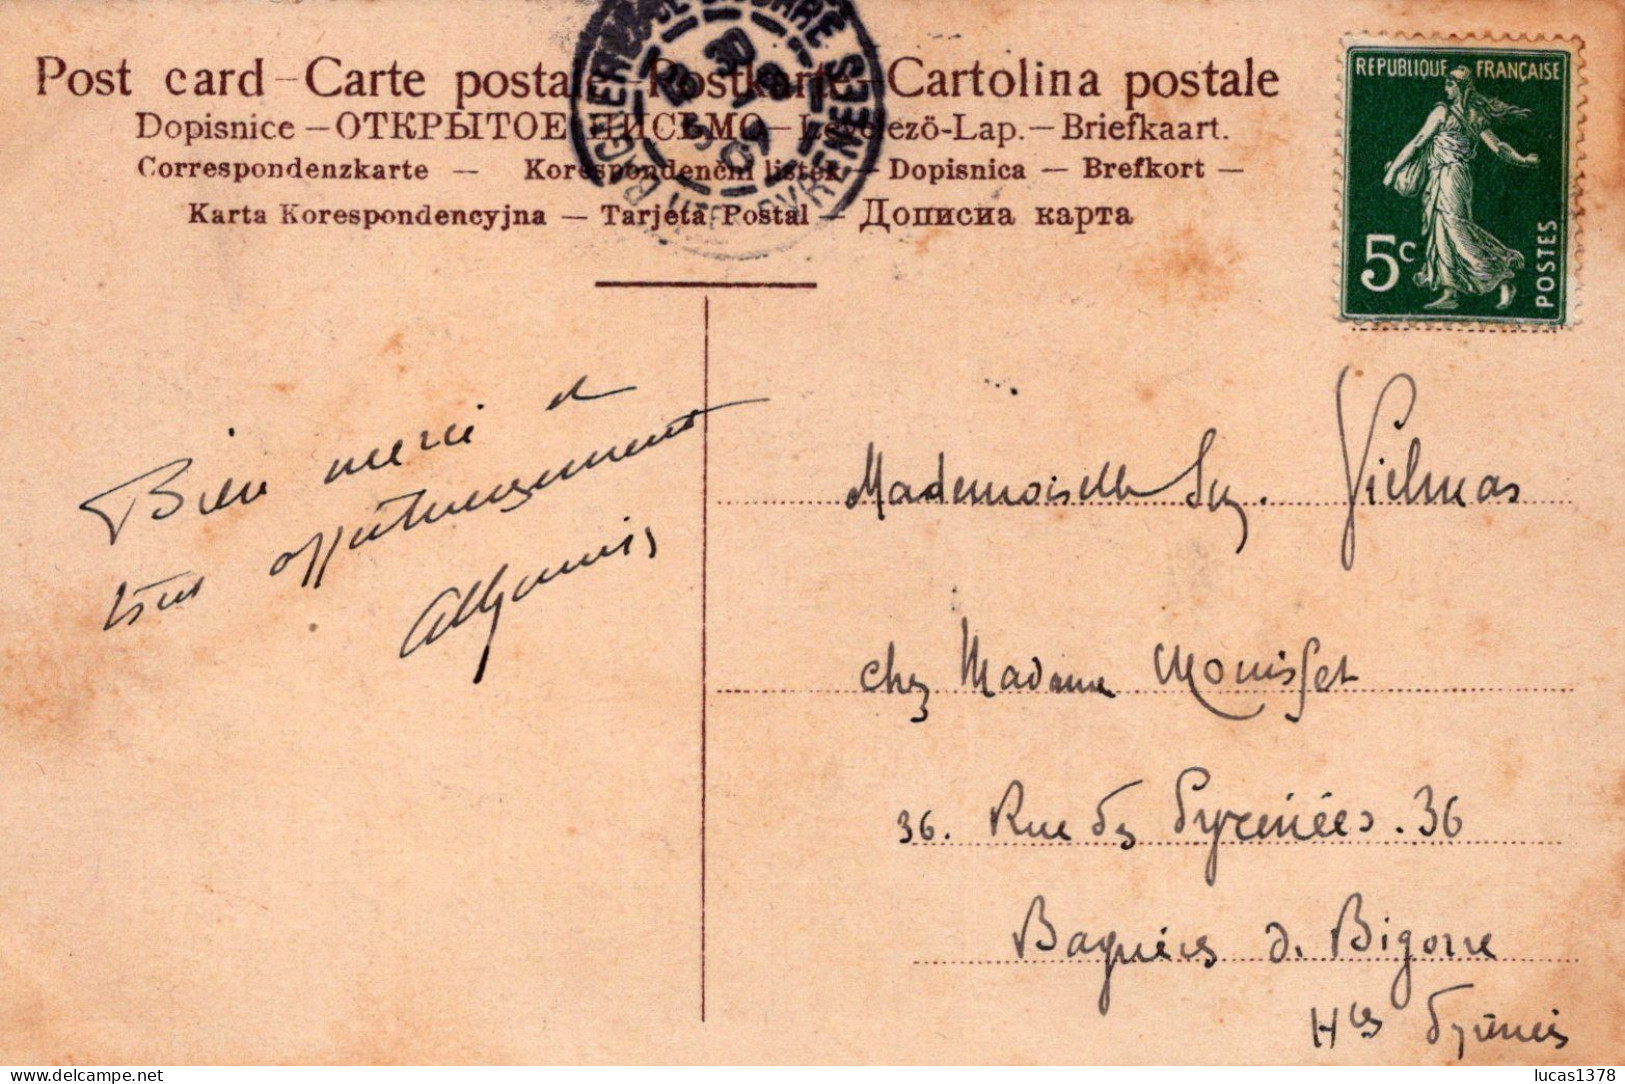 Post card – Carte postale – Postkarte – Cartolina postale
Dopisnice – ОТКРЫТОЕ ПИСЬМО – Levelező-Lap. – Briefkaart.
Correspondenzkarte – Korespondenční lístek – Dopisnica – Brefkort –
Karta Korespondencyjna – Tarjeta Postal – Дописна карта
BAGNERES DE BIGORRE HTES PYRENEES
REPUBLIQUE FRANÇAISE
5c
POSTES
Bien merci à
tous
Mademoiselle Suz. Vielmas
chez Madame Mouisset
36. Rue des Pyrénées. 36
Bagnères d. Bigorre
Htes Pyrénées
lucas1378